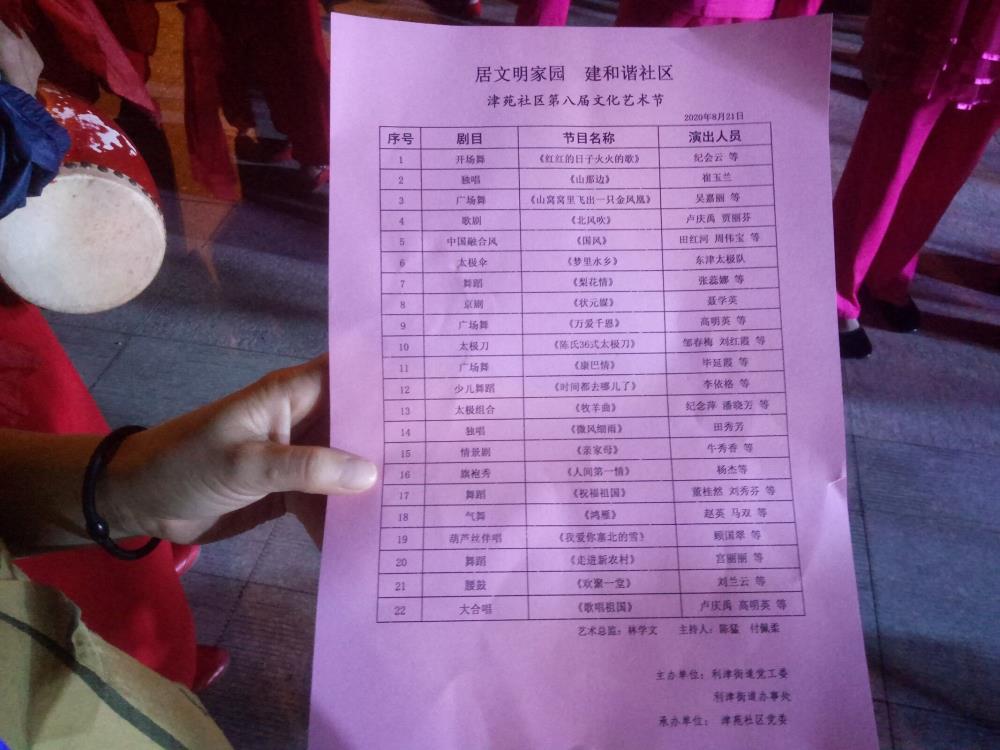 居文明家园 建和谐社区
津苑社区第八届文化艺术节
2020年8月21日
序号 剧目 节目名称 演出人员
1 开场舞 《红红的日子火火的歌》 纪会云 等
2 独唱 《山那边》 崔玉兰
3 广场舞 《山窝窝里飞出一只金凤凰》 吴嘉丽 等
4 歌剧 《北风吹》 卢庆禹 贾丽芬
5 中国融合风 《国风》 田红河 周伟宝 等
6 太极伞 《梦里水乡》 东津太极队
7 舞蹈 《梨花情》 张蕊娜 等
8 京剧 《状元媒》 聂学英
9 广场舞 《万爱千恩》 高明英 等
10 太极刀 《陈氏36式太极刀》 邹春梅 刘红霞 等
11 广场舞 《康巴情》 毕延霞 等
12 少儿舞蹈 《时间都去哪儿了》 李依格 等
13 太极组合 《牧羊曲》 纪念萍 潘晓芳 等
14 独唱 《微风细雨》 田秀芳
15 情景剧 《亲家母》 牛秀香 等
16 旗袍秀 《人间第一情》 杨杰等
17 舞蹈 《祝福祖国》 董桂然 刘秀芬 等
18 气舞 《鸿雁》 赵英 马双 等
19 葫芦丝伴唱 《我爱你塞北的雪》 顾国翠 等
20 舞蹈 《走进新农村》 宫丽丽 等
21 腰鼓 《欢聚一堂》 刘兰云 等
22 大合唱 《歌唱祖国》 卢庆禹 高明英 等
艺术总监：林学文 主持人：陈猛 付佩柔
主办单位：利津街道党工委
利津街道办事处
承办单位： 津苑社区党委